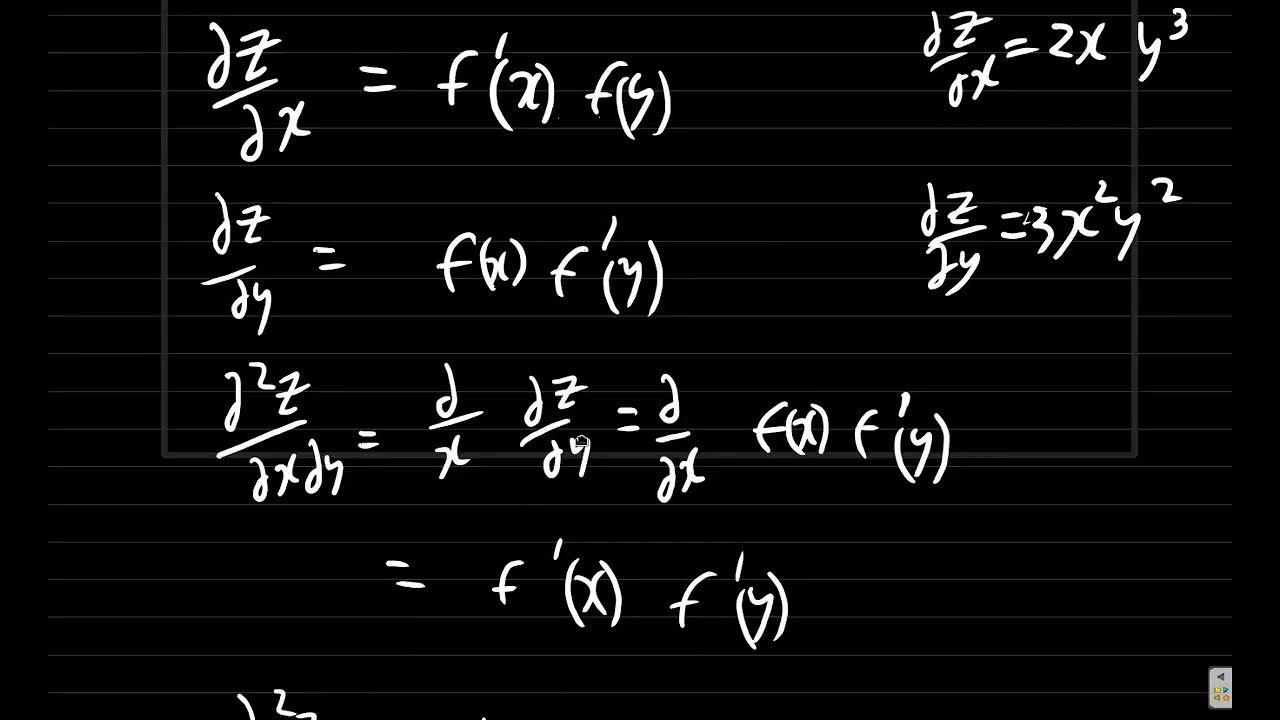 ∂z/∂x = f'(x) f(y)
∂z/∂x = 2x y³
∂z/∂y = f(x) f'(y)
∂z/∂y = 3x²y²
∂²z/∂x∂y = ∂/x ∂z/∂y = ∂/∂x f(x) f'(y)
= f'(x) f'(y)
∂²z